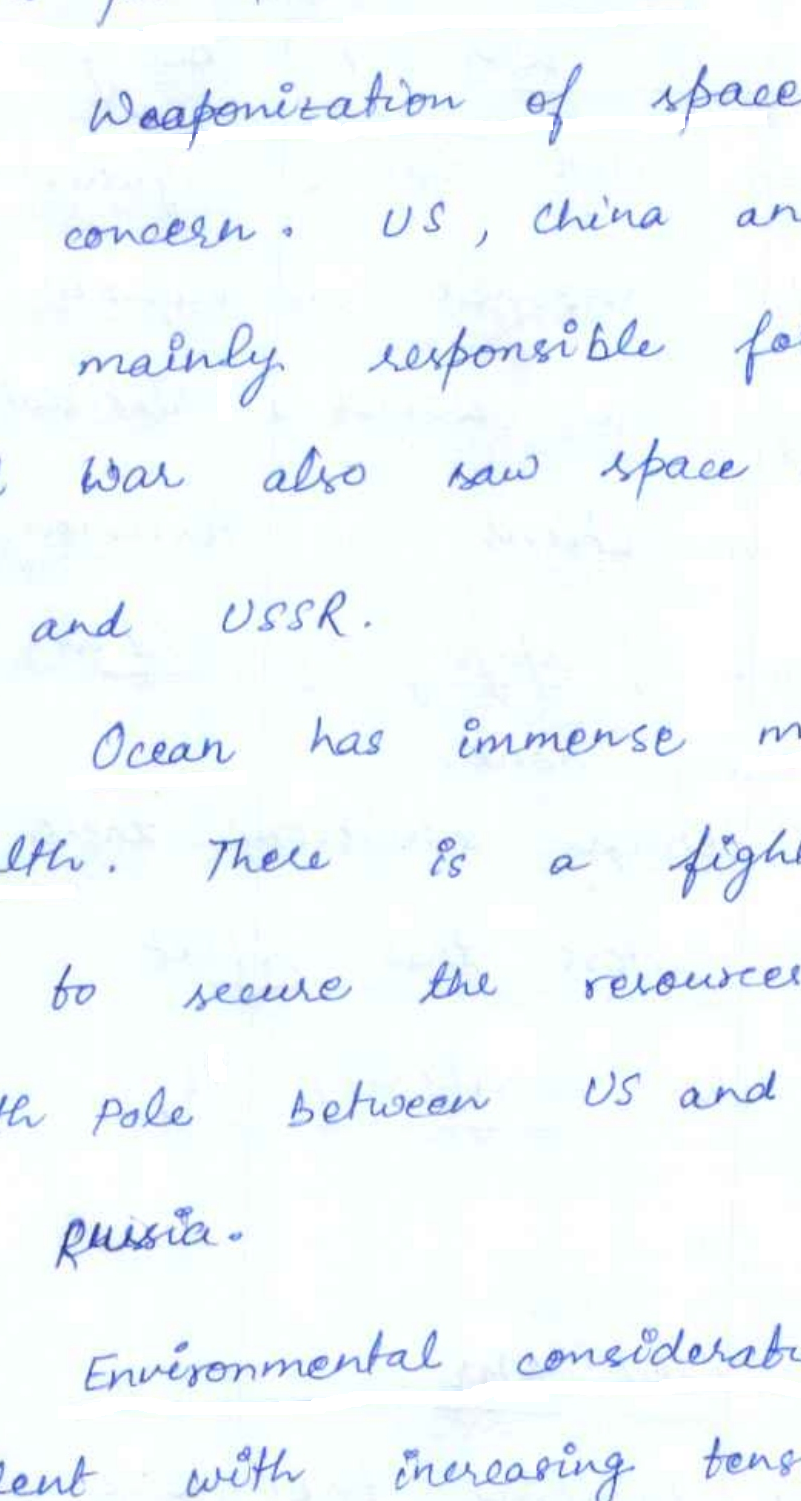 Weaponization of space
concern. US, China an
mainly responsible fo
War also saw space
and USSR.
Ocean has immense m
lth. There is a figh
to secure the resources
th Pole between US and
Russia.
Environmental considerat
lent with increasing tens